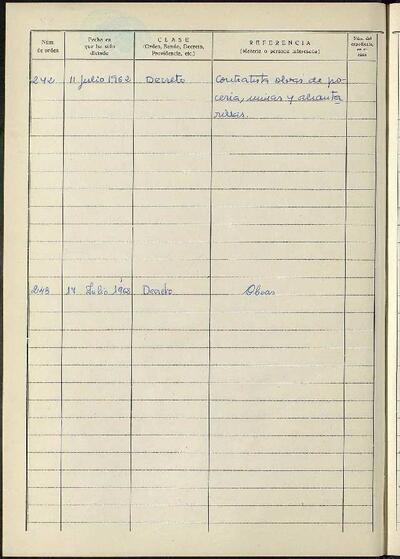 Núm. de orden
Fecha en que ha sido dictado
CLASE (Orden, Bando, Decreto, Providencia, etc.)
REFERENCIA (Materia o persona interesada)
Núm. del expediente
242 11 Julio 1962 Decreto Contratista obras de po-
ceria, minas y alcanta-
rillas.
243 17 Julio 1962 Decreto Obras